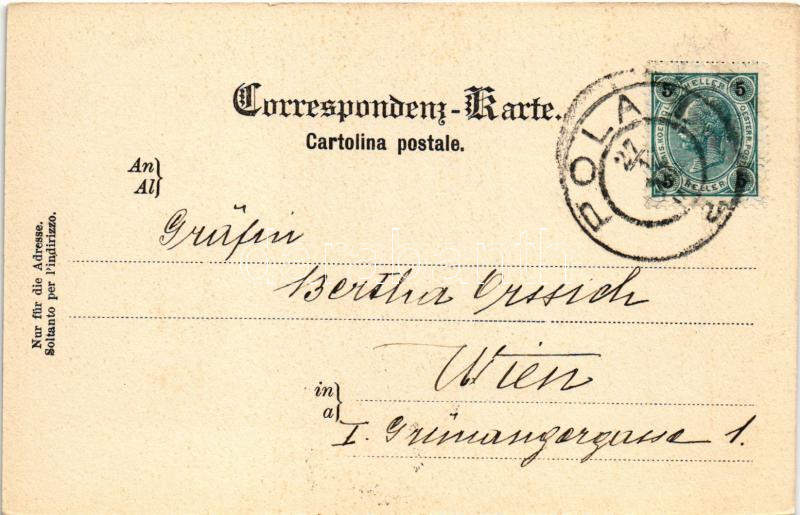 Correspondenz-Karte.
Cartolina postale.
An
Al
Gräfin
Bertha Orssich
in
a
Wien
I. Grünangergasse 1.
Nur für die Adresse.
Soltanto per l'indirizzo.
POLA
27
5 HELLER 5
5 HELLER 5
OESTERR. POST